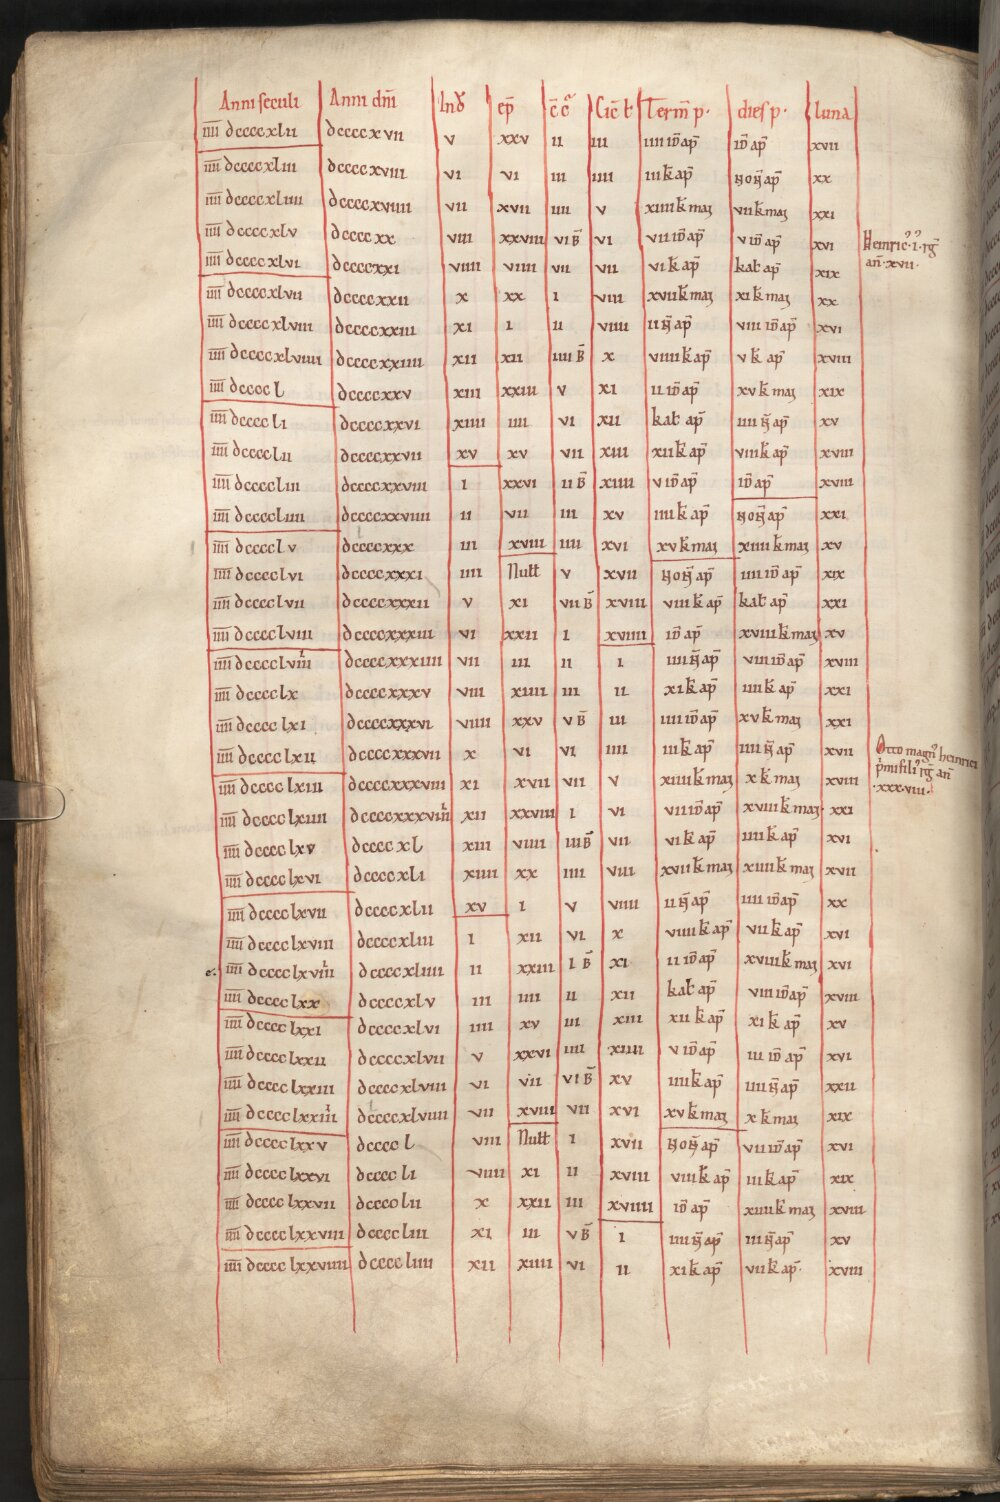 Anni seculi Anni dm̄ Indᷓ ep̄ c̄c̄ Cic̄ł Term̄ p· dies p· luna
īīīī dccccxlii dccccxvii v xxv ii iii iiii id̄ ap̄ id̄ ap̄ xvii
īīīī dccccxliii dccccxviii vi vi iii iiii iii k̄ ap̄ non̄ ap̄ xx
īīīī dccccxliiii dccccxviiii vii xvii iiii v xiiii k̄ maȝ vii k̄ maȝ xxi
īīīī dccccxlv dccccxx viii xxviii vi B̄ vi vii id̄ ap̄ v id̄ ap̄ xvi
Heinric᾽ · i · rḡ
an̄ · xvii ·
īīīī dccccxlvi dccccxxi viiii viiii vii vii vi k̄ ap̄ kał ap̄ xix
īīīī dccccxlvii dccccxxii x xx i viii xvii k̄ maȝ xi k̄ maȝ xx
īīīī dccccxlviii dccccxxiii xi i ii viiii ii n̄ ap̄ viii id̄ ap̄ xvi
īīīī dccccxlviiii dccccxxiiii xii xii iiii B̄ x viiii k̄ ap̄ v k̄ ap̄ xviii
īīīī dccccl dccccxxv xiii xxiii v xi ii id̄ ap̄ xv k̄ maȝ xix
īīīī dccccli dccccxxvi xiiii iiii vi xii kał ap̄ iiii n̄ ap̄ xv
īīīī dcccclii dccccxxvii xv xv vii xiii xii k̄ ap̄ viii k̄ ap̄ xviii
īīīī dccccliii dccccxxviii i xxvi ii B̄ xiiii v id̄ ap̄ id̄ ap̄ xviii
īīīī dccccliiii dccccxxviiii ii vii iii xv iiii k̄ ap̄ non̄ ap̄ xxi
īīīī dcccclv dccccxxx iii xviii iiii xvi xv k̄ maȝ xiiii k̄ maȝ xv
īīīī dcccclvi dccccxxxi iiii Nułł v xvii non̄ ap̄ iiii id̄ ap̄ xix
īīīī dcccclvii dccccxxxii v xi vii B̄ xviii viii k̄ ap̄ kał ap̄ xxi
īīīī dcccclviii dccccxxxiii vi xxii i xviiii id̄ ap̄ xviii k̄ maȝ xv
īīīī dcccclviiii dccccxxxiiii vii iii ii i iiii n̄ ap̄ viii id̄ ap̄ xviii
īīīī dcccclx dccccxxxv viii xiiii iii ii xi k̄ ap̄ iiii k̄ ap̄ xxi
īīīī dcccclxi dccccxxxvi viiii xxv v B̄ iii iiii id̄ ap̄ xv k̄ maȝ xxi
īīīī dcccclxii dccccxxxvii x vi vi iiii iii k̄ ap̄ iiii n̄ ap̄ xvii
Otto magn᾽ heinrici
p̍mi fili᾽ rḡ an̄
· xxx · viii ·
īīīī dcccclxiii dccccxxxviii xi xvii vii v xiiii k̄ maȝ x k̄ maȝ xviii
īīīī dcccclxiiii dccccxxxviiii xii xxviii i vi vii id̄ ap̄ xviii k̄ maȝ · xxi
īīīī dcccclxv dccccxl xiii viiii iii B̄ vii vi k̄ ap̄ iiii k̄ ap̄ xvi
īīīī dcccclxvi dccccxli xiiii xx iiii viii xvii k̄ maȝ xiiii k̄ maȝ xvii
īīīī dcccclxvii dccccxlii xv i v viiii ii n̄ ap̄ iiii id̄ ap̄ xx
īīīī dcccclxviii dccccxliii i xii vi x viiii k̄ ap̄ vii k̄ ap̄ xvi
īīīī dcccclxviiii dccccxliiii ii xxiii i B̄ xi ii id̄ ap̄ xviii k̄ maȝ xvi
īīīī dcccclxx dccccxlv iii iiii ii xii kał ap̄ viii id̄ ap̄ xviii
īīīī dcccclxxi dccccxlvi iiii xv iii xiii xii k̄ ap̄ xi k̄ ap̄ xv
īīīī dcccclxxii dccccxlvii v xxvi iiii xiiii v id̄ ap̄ iii id̄ ap̄ xvi
īīīī dcccclxxiii dccccxlviii vi vii vi B̄ xv iiii k̄ ap̄ iiii n̄ ap̄ xxii
īīīī dcccclxxiiii dccccxlviiii vii xviii vii xvi xv k̄ maȝ x k̄ maȝ xix
īīīī dcccclxxv dccccl viii Nułł i xvii non̄ ap̄ vii id̄ ap̄ xvi
īīīī dcccclxxvi dccccli viiii xi ii xviii viii k̄ ap̄ iii k̄ ap̄ xix
īīīī dcccclxxvii dcccclii x xxii iii xviiii id̄ ap̄ xiii k̄ maȝ xviii
īīīī dcccclxxviii dccccliii xi iii v B̄ i iiii n̄ ap̄ iii n̄ ap̄ xv
īīīī dcccclxxviiii dccccliiii xii xiiii vi ii xi k̄ ap̄ vii k̄ ap̄ · xviii